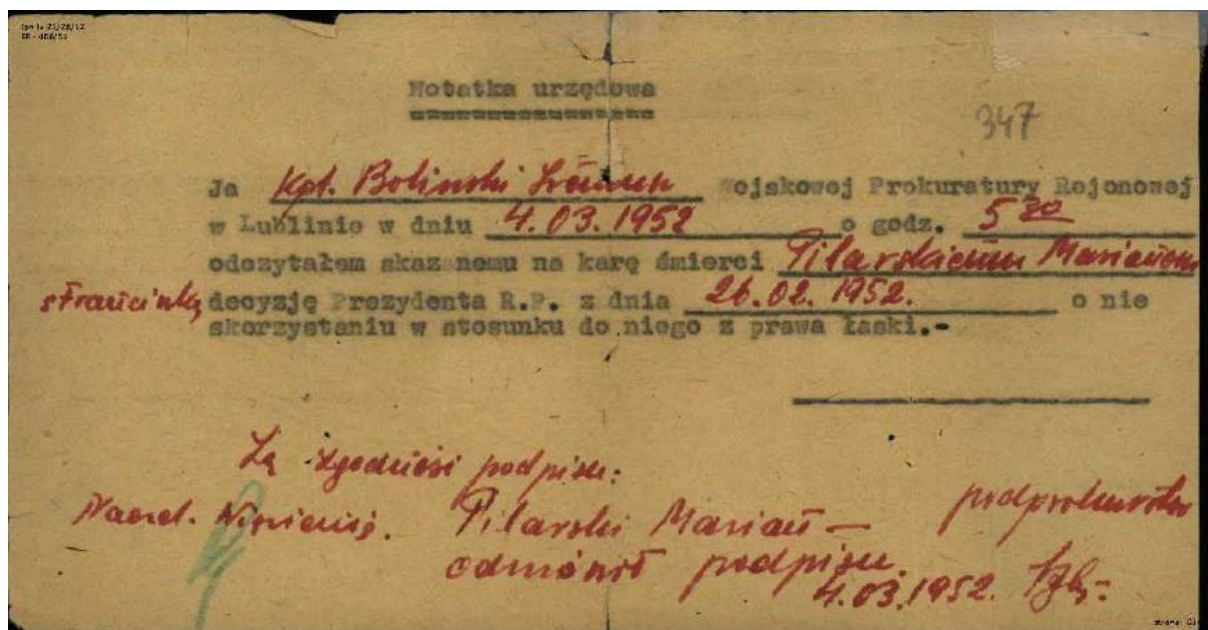 Notatka urzędowa
347
Ja Kpt. Boliński Wojskowej Prokuratury Rejonowej
w Lublinie w dniu 4.03.1952 o godz. 5 30
odczytałem skazanemu na karę śmierci Pilarskiemu Marianowi
s Franciszka decyzję Prezydenta R.P. z dnia 26.02.1952. o nie
skorzystaniu w stosunku do niego z prawa łaski.-
Za zgodność podpisu:
Naczel. Więzienia. Pilarski Marian — podprokurator
odmówił podpisu.
4.03.1952.